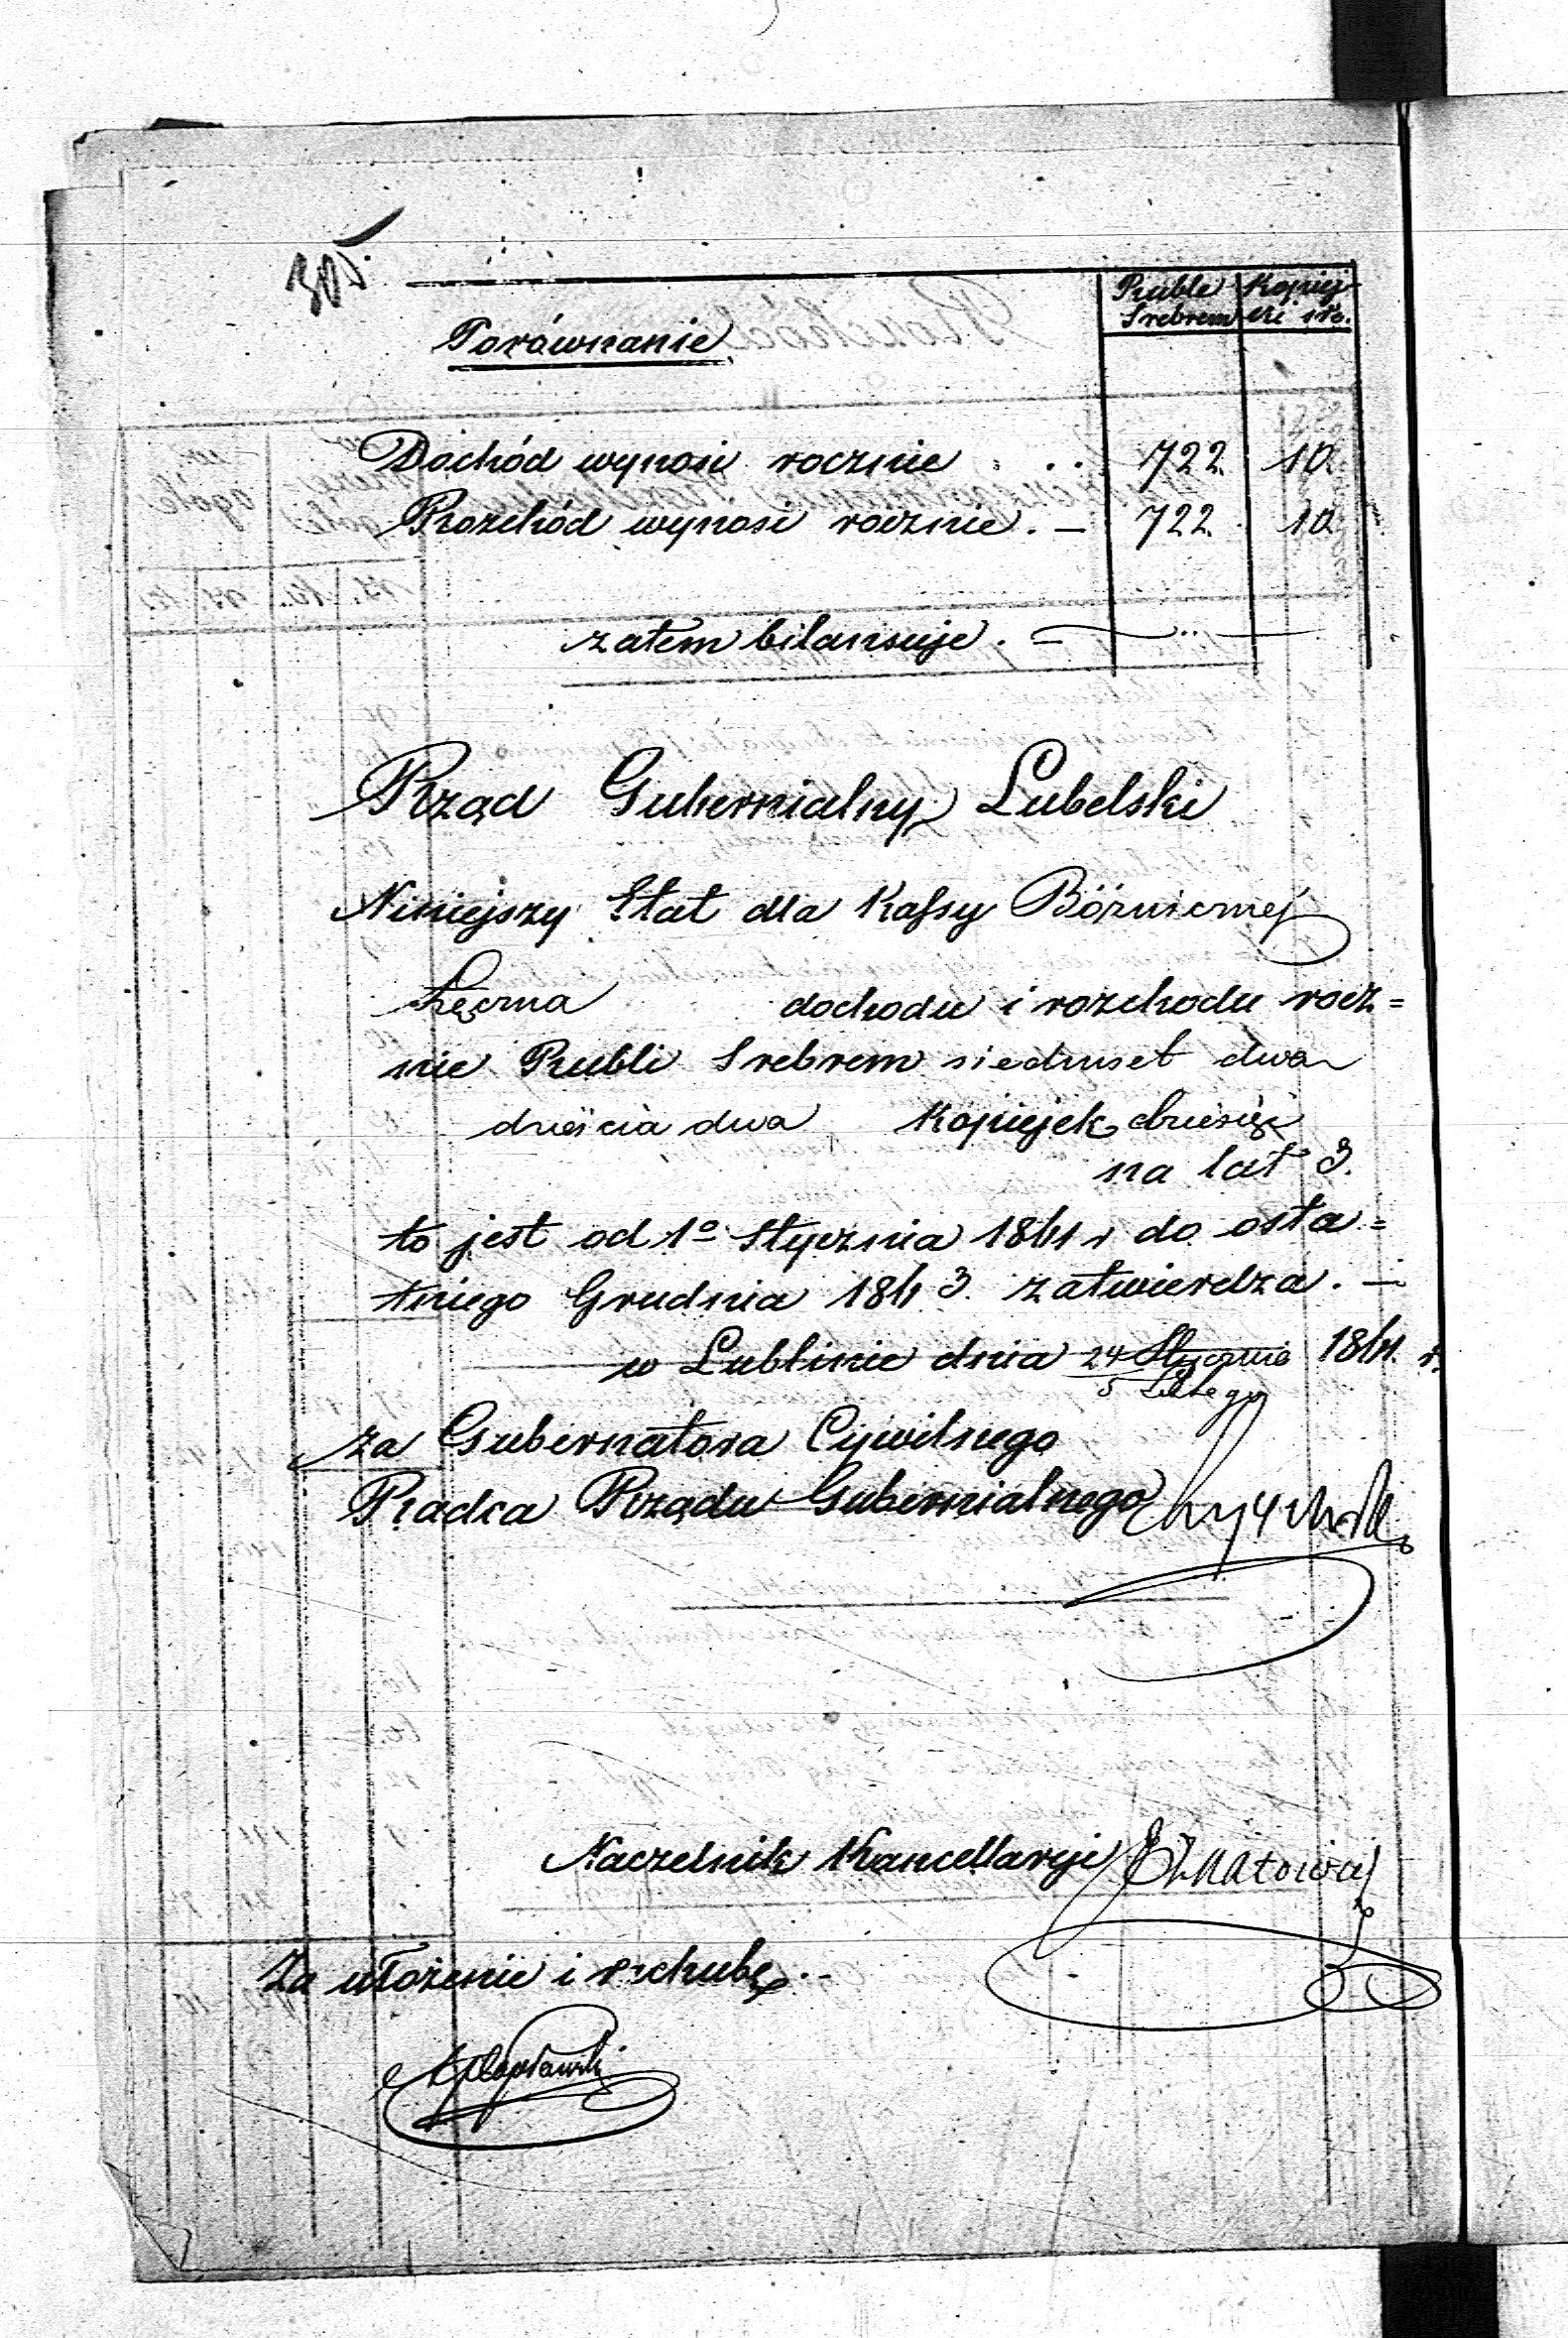 305.
Ruble Kopiej
Srebrem ki sre.
Porównanie
Dochód wynosi rocznie . . . 722. 10
Rozchód wynosi rocznie . — 722. 10
zatem bilansuje . — — „ —
Rząd Gubernialny Lubelski
Niniejszy Etat dla Kassy Bóżniczney
Łęczna dochodu i rozchodu rocz=
nie Rubli Srebrem siedmset dwa
dzieścia dwa Kopiejek dziesięć
na lat 3.
to jest od 1º Stycznia 1861 r do osta=
tniego Grudnia 186 3. zatwierdza. —
w Lublinie dnia 24 Stycznia 1861. r.
5 Lutego
za Gubernatora Cywilnego
Radca Rządu Gubernialnego
Naczelnik Kancellaryi
Za ułożenie i rachubę . -